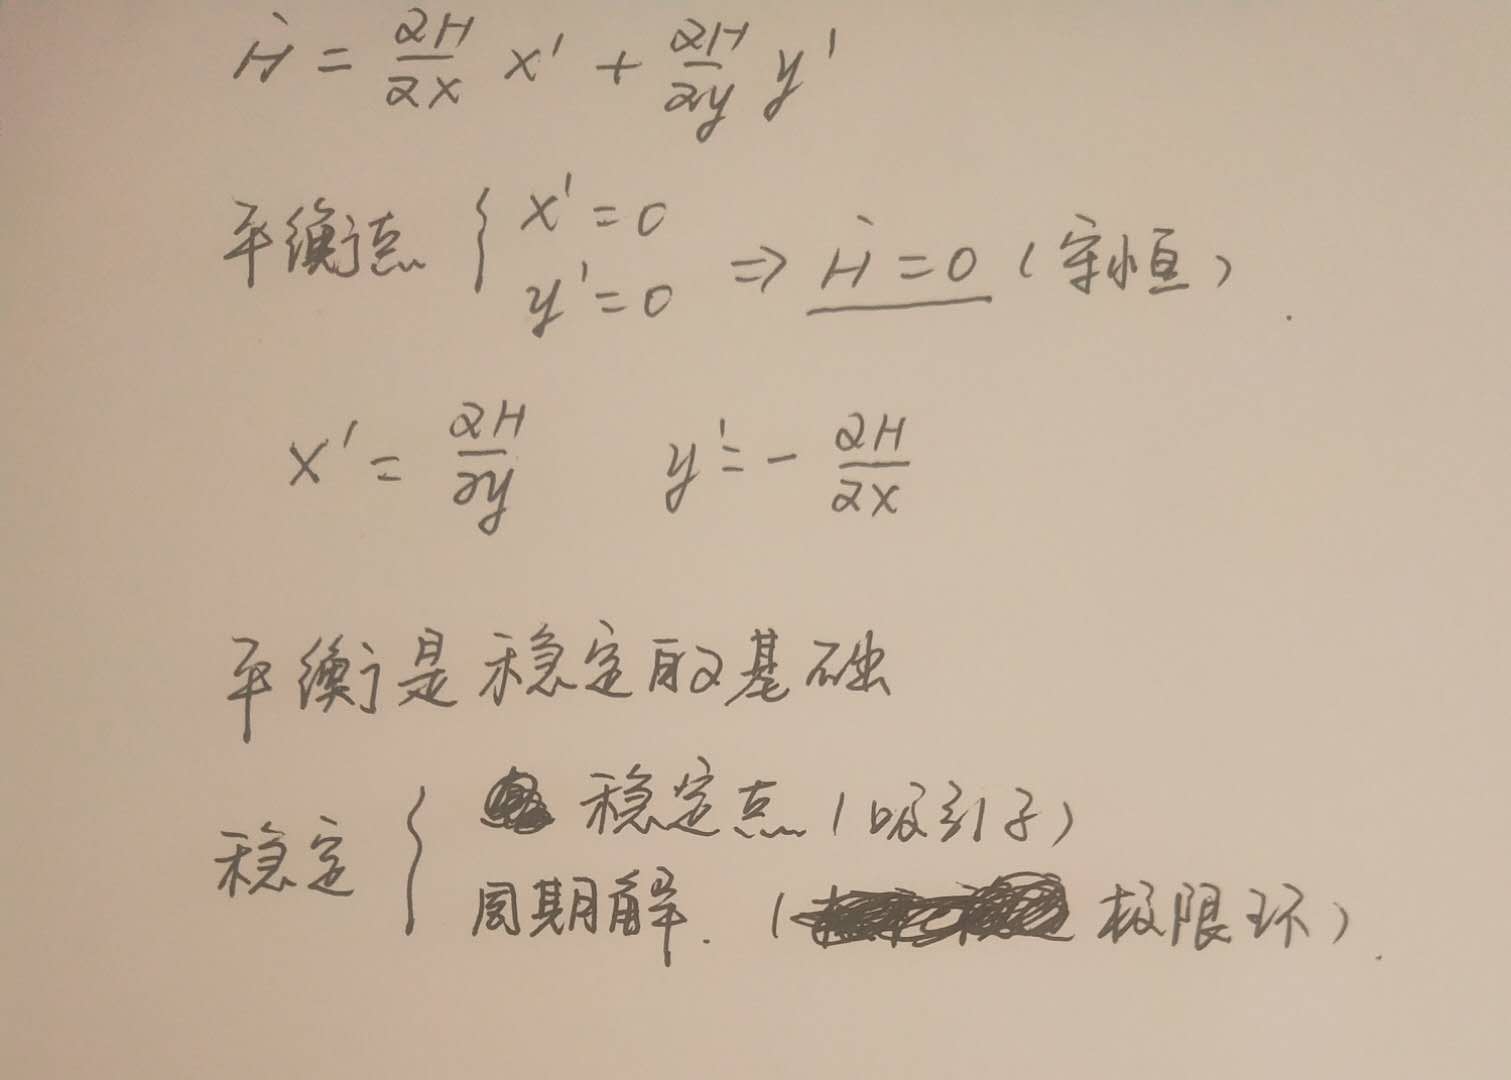 Ḣ = ∂H/∂x x' + ∂H/∂y y'
平衡点 { x'=0 y'=0 ⇒ Ḣ=0 (守恒)
x' = ∂H/∂y y' = - ∂H/∂x
平衡是稳定的基础
稳定 { 稳定点 (吸引子)
周期解. (极限环).